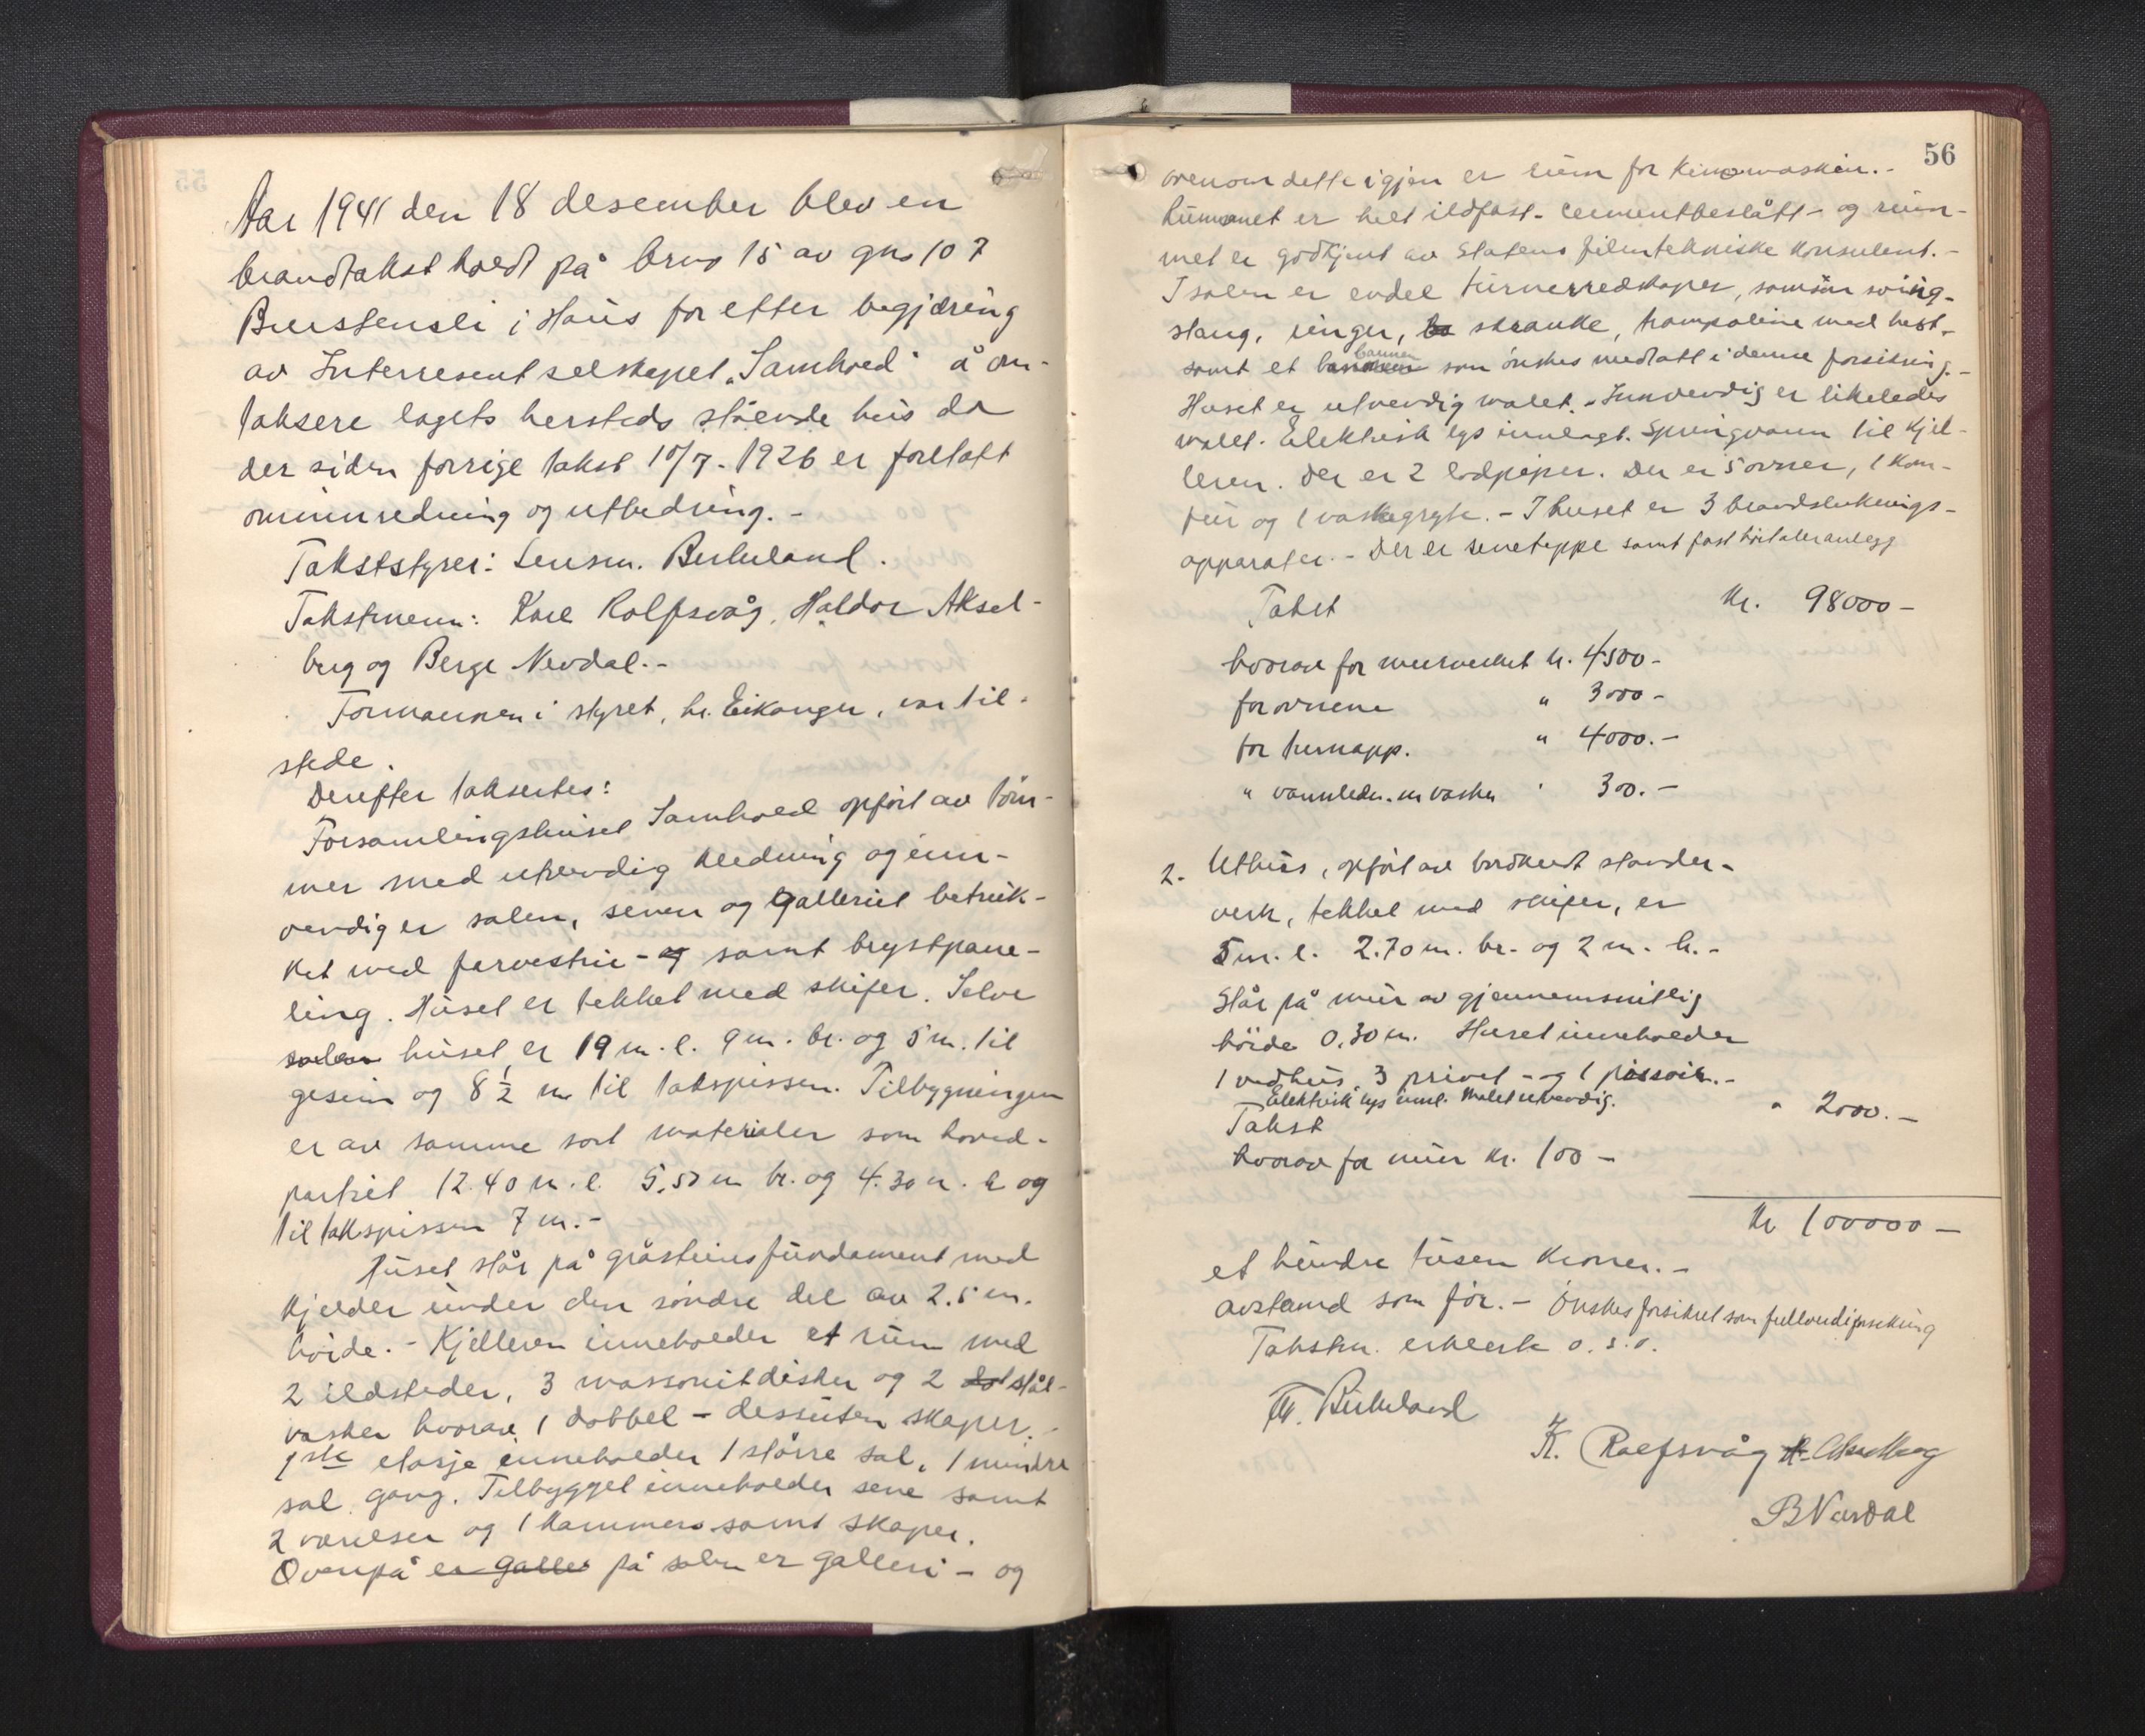 Aar 1941 den 18 desember blev en
brandtakst holdt på brno 15 av gno 107
i Haus for efter begjæring
av Interresentselskapet „Samhold" å om-
taksere lagets hersteds stående hus da
der siden forrige takst 10/7-1926 er foretatt
ominnredning og utbedring. -
Takststyrer: Lensm. Birkeland.
Takstmenn: Kare Rolfsvåg, Haldor Aksel-
berg og Berge Nevdal. -
Formannen i styret, hr. Eikanger, var til-
stede.
Derefter taksertes:
Forsamlingshuset Samhold opført av töm-
mer med utvendig kledning og inn-
vendig er salen, senen og galleriet betrek-
ket med farvestrie - og samt brystpane-
ling. Huset er tekket med skifer. Selve
salen huset er 19 m. l. 9 m. br. og 5 m. til
gesims og 8 1/2 m til takspissen. Tilbygningen
er av samme sort materialer som hoved-
partiet 12.40 m. l. 5.50 m br. og 4.30 m. h og
til takspissen 7 m. -
Huset står på gråsteinsfundament med
kjelder under den söndre del av 2.5 m.
höide. - Kjelleren inneholder et rum med
2 ildsteder, 3 massonitdisker og 2 stål-
vasker hvorav 1 dobbel - dessuten skaper. -
1ste etasje inneholder 1 större sal, 1 mindre
sal, gang. Tilbygget inneholder sene samt
2 værelser og 1 kammers samt skaper.
Ovenpå er galle på salen er galleri - og
56
ovenom dette igjen er rum for kinomaskin. -
Rummet er helt ildfast - cementbeslått - og rum-
met er godkjent av Statens filmtekniske konsulent. -
I salen er endel turnerredskaper, somsån sving-
stang, ringer, skranke, trampoline med hest -
samt et banner som önskes medtatt i denne forsikring. -
Huset er utvendig malet. - Innvendig er likeledes
malt. Elektrisk lys innlagt. Springvann til kjel-
leren. Der er 2 lodpiper. Der er 5 ovner, 1 kom-
fur og 1 vaskegryte. - I huset er 3 brandslukkings-
apparater. - Der er seneteppe samt fast höitaleranlegg
Takst Kr. 98000 -
hvorav for murverket kr. 4500 -
for ovnene " 3000 -
for turnapp. " 4000. -
" vannledn. m vasker " 300. -
2. Uthus, opfört av bordkledt stander-
verk, tekket med skifer, er
5 m. l. 2.70 m. br. og 2 m. h. -
Står på mur av gjennemsnitlig
höide 0.30 m. Huset inneholder
1 vedhus, 3 privet - og 1 pissoir. -
Elektrisk lys innl. Malet utvendig.
Takst " 2000. -
hvorav for mur kr. 100 -
Kr 100000 -
et hundre tusen kroner. -
avstand som för. - Önskes forsikret som fullverdiforsikring
Takstm. erklærte o. s. v.
Birkeland
K. Rolfsvåg H. Akselberg
B Nevdal